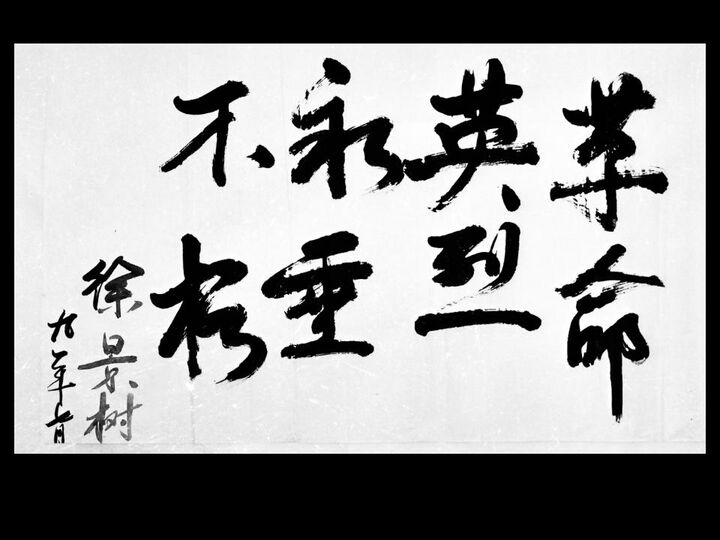 革命
英烈
永垂
不朽
徐景树
九一年七月